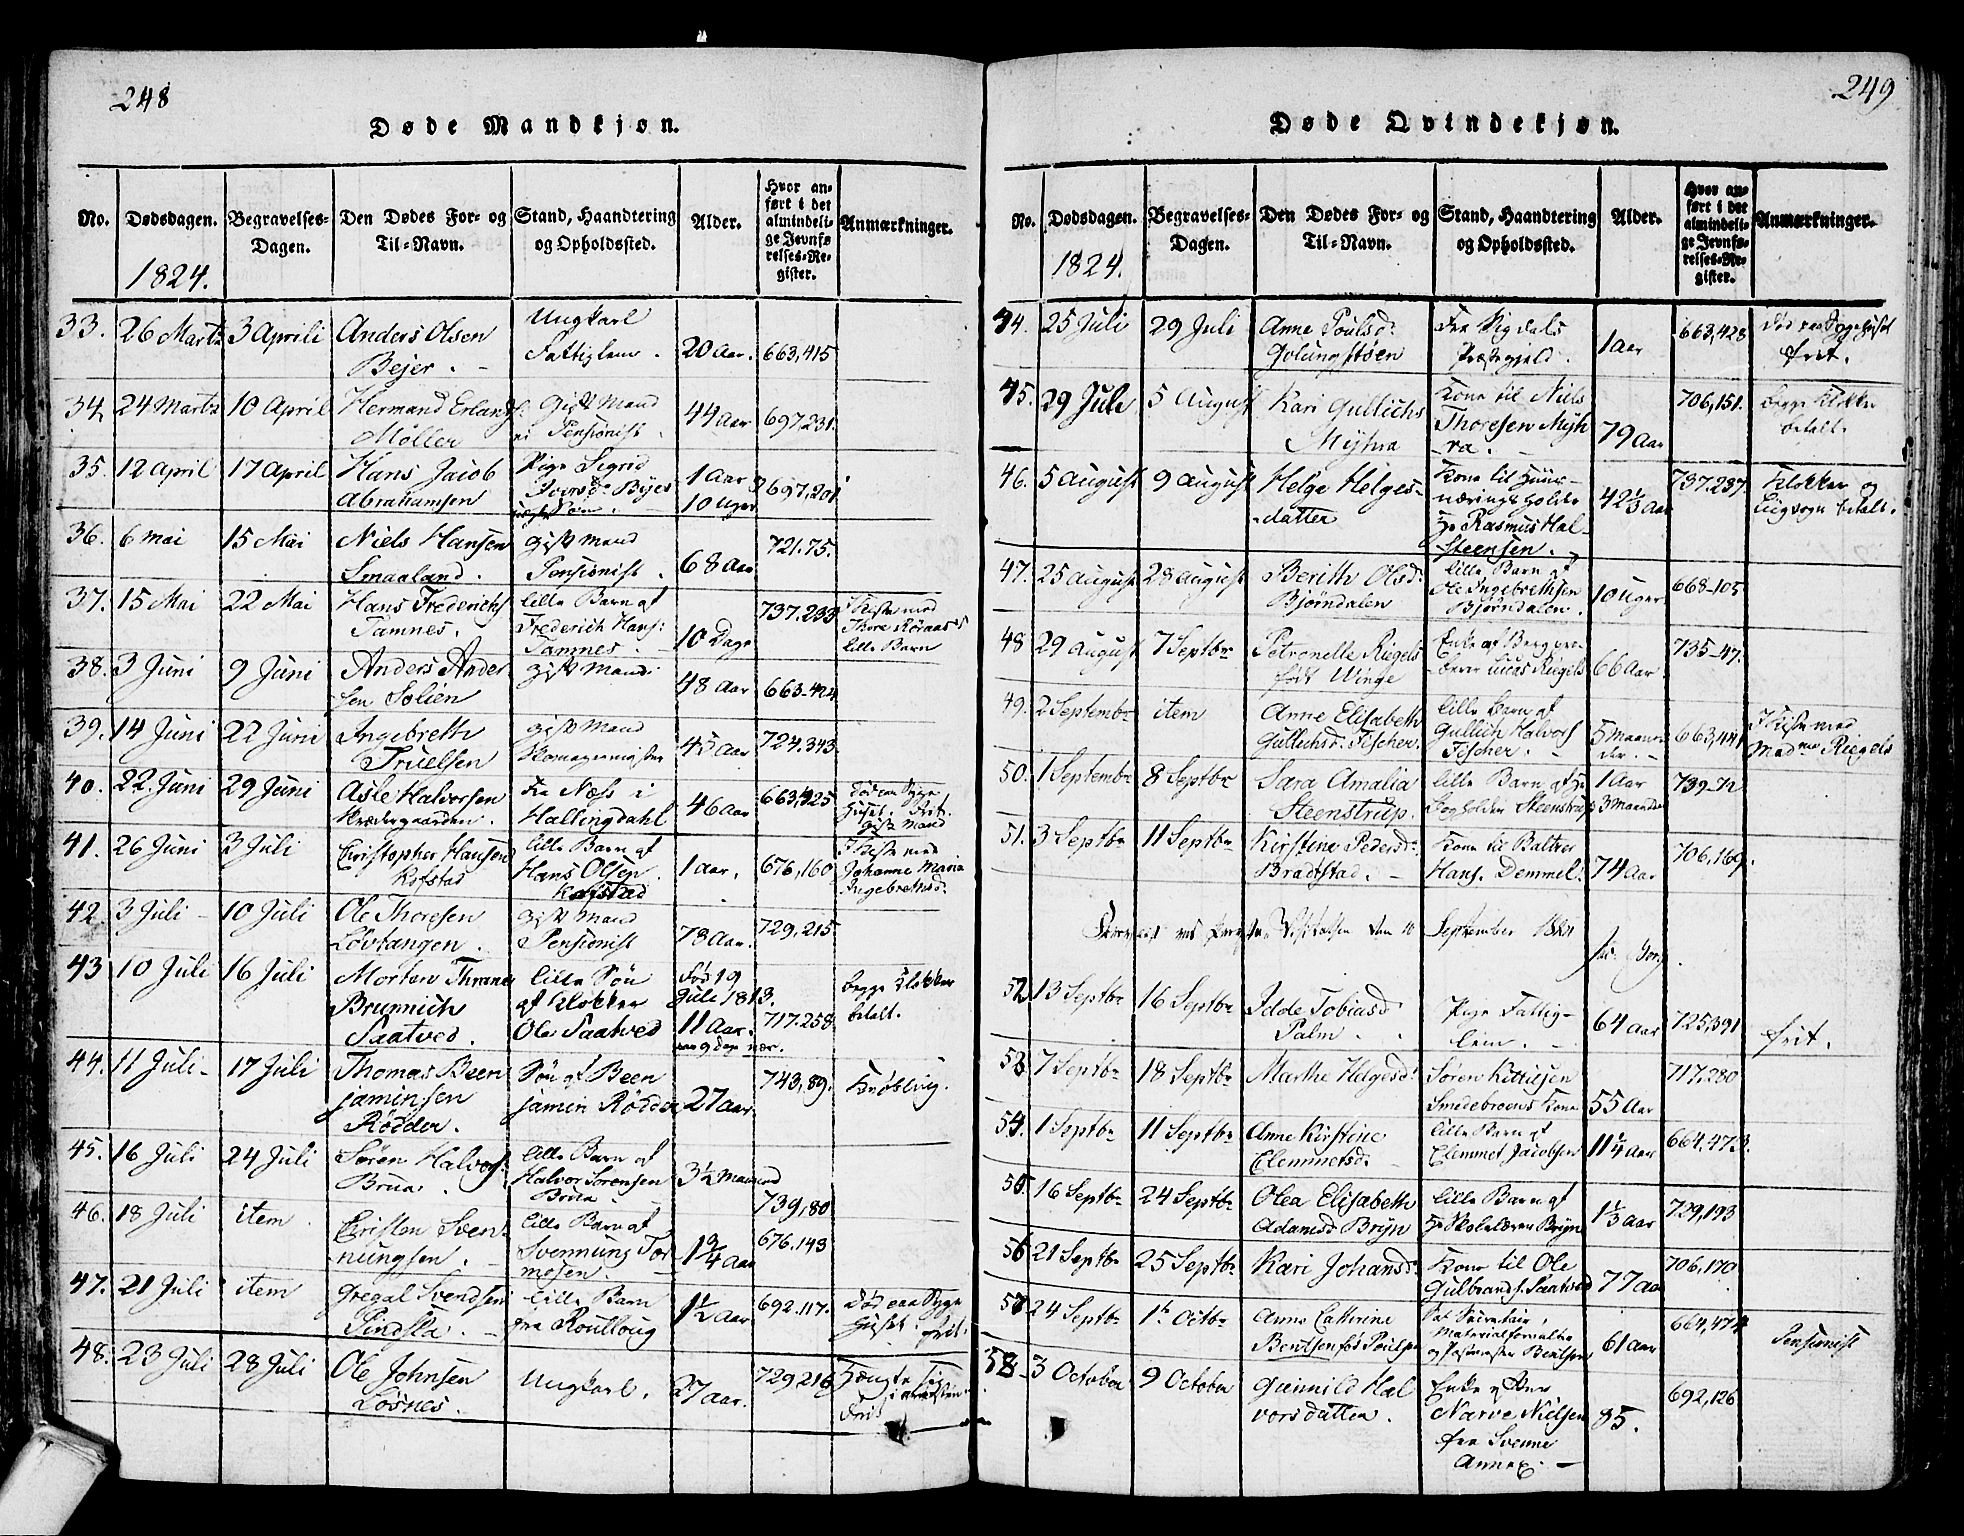 248
Døde Mandkjøn.
No. Dødsdagen. Begravelses-Dagen. Den Dødes For- og Til-Navn. Stand, Haandtering og Opholdssted. Alder. Hvor anført i det almindelige Jevnførelses-Register. Anmærkninger.
1824.
33. 26 Marts 3 Aprili Anders Olsen Bejer. Ungkarl Fattiglem. 20 Aar. 663,415
34. 24 Marts 10 April Hermand Erlands: Møller Gift Mand Pensionist 44 Aar 697,231.
35. 12 April 17 April Hans Jacob Abrahamsen Pige Sigrid Iversd. 1 Aar 10 Uger 697,201
36. 6 Mai 15 Mai Niels Hansen Smaaland. Gift Mand Pensionist. 68 Aar 721.75.
37. 15 Mai 22 Mai Hans Frederichs Tamnes. lille Barn af Frederich Hans: Tamnes. 10 Dage 737.233 I Kiste med Thore Røraas's lille Barn
38. 3 Juni 9 Juni Anders Andersen Solien Gift Mand 48 Aar 663.424
39. 14 Juni 22 Juni Ingebreth Truelsen Gift Mand Skomagermester 45 Aar 724.343
40. 22. Juni 29 Juni Asle Halvorsen Krædergaarden. Fra Næss i Hallingdahl 46 Aar 663,425 Død paa Syge Huset. Frit. Gift Mand
41. 26 Juni 3 Juli Christopher Hansen Kofstad lille Barn af Hans Olsen Kofstad 1 Aar. 676,160 I Kiste med Johanne Maria Ingebrethsd.
42. 3 Juli 10 Juli Ole Thoresen Løvtangen. Gift Mand Pensionist 78 Aar. 729,215
43 10 Juli 16 Juli Morten Thrane Brunnich Saatved. lille Søn af Klokker Ole Saatved Fød 19 Juli 1813. 11 Aar. paa 9 dage nær. 717.258 begge Klokker betalt.
44. 11 Juli 17 Juli Thomas Beenjaminsen Rødder. Søn af Beenjamin Rødder 27 aar. 743,89.
45. 16 Juli 24 Juli Søren Halvors: Brua. lille Barn af Halvor Sørensen Brua. 3½ Maaned 739,80
46. 18 Juli item. Christen Svennungsen. lille Barn af Svennung Tormosen. 1¾ Aar 676.143
47. 21 Juli item Gregal Svendsen Pindsla. lille Barn fra Roulloug 1½ Aar 692.117. Død paa Syge Huset. frit.
48. 23 Juli 28 Juli Ole Johnsen Løsnes. Ungkarl. 27 aar. 729,216 Hængte sig i arresten Frit
249
Døde Qvindekjøn.
No. Dødsdagen. Begravelses-Dagen. Den Dødes For- og Til-Navn. Stand, Haandtering og Opholdssted. Alder. Hvor anført i det almindelige Jevnførelses-Register. Anmærkninger.
1824.
44. 25 Juli 29 Juli Anne Poulsd: Fra Sigdals Præstegjeld. 1 Aar 663,428 Død paa Sygehuset frit.
45. 29 Juli 5 August Kari Gullichs Myhra Kone til Niels Thoresen Myhra. 79 Aar 706,151. begge Klokker betalt.
46. 5 August 9 August Helge Helgesdatter Kone til Huusnæringsholder Hr Rasmus Halsteensen. 42⅓ Aar 737.237 Klokker og Liigvogn betalt.
47. 25 August 28 August Berith Olsd: Bjørndalen lille Barn af Ole Ingebrethsen Bjørndalen. 10 Uger 668-105
48 29 August 7 Septbr Petronelle Riegels født Winge Enke af Lucas Riegels 66 Aar. 735-47.
49. 2 Septembr item Anne Elisabeth Gullichsd. Fischer. lille Barn af Gullich Halvors Fischer. 5 Maaneder. 663,441 I Kiste med Madme Riegels
50. 1 Septembr 8 Septbr Sara Amalia Steenstrup. lille Barn af Hr Bogholder Steenstrup 1 Aar 3 Maaneder 739-72
51. 3 Septbr 11 Septbr Kirstine Pedersd: Bradtstad. Kone til Baltzer Hans. Demmel. 74 Aar 706,169.
10 September 1824
52. 13 Septbr 16 Septbr Idde Tobiasd Palm. Pige Fattiglem. 64 aar 725,391 frit.
53 7 Septbr 18 Septbr Marthe Helgesd: Søren Kittilsen Smedebroens Kone 55 Aar 717.280
54. 1 Septbr 11 Septbr Anne Kirstine Clemmetsd. lille Barn af Clemmet Jacobsen 11¼ Aar 664,473.
55. 16 Septbr 24 Septbr Olea Elisabeth Adamsd Bryn lille Barn af Hr Skolelærer Bryn 1⅓ Aar 729,193
56 21 Septbr 25 Septbr Kari Johansd: Kone til Ole Gulbrands. Saatved 77 aar 706,170
57 24 Septbr 1te Octbr Anne Cathrine Bentsen fød Poulsen Materialforvalter og Postmester Bentsen 61 aar 664,474 Pensionist
58 3 October 9 October Gunnild Halvorsdatter. Enke af Narve Nielsen fra Svenne Annex. 85. 692,126